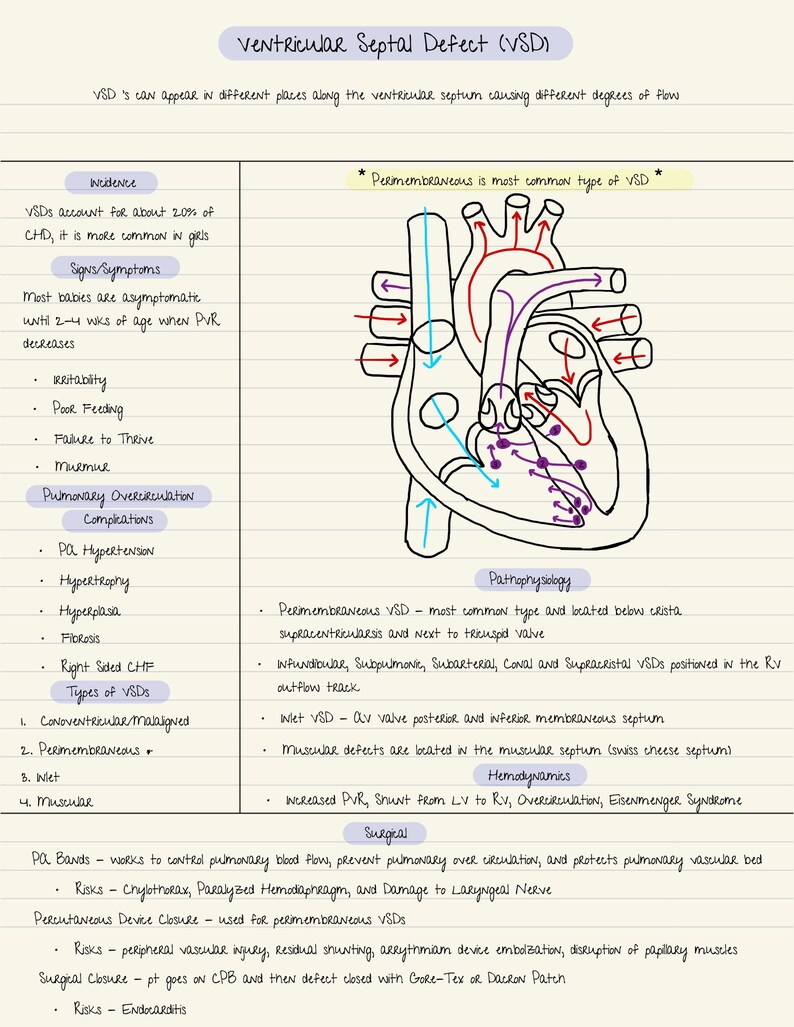 Ventricular Septal Defect (VSD)
VSD 's can appear in different places along the ventricular septum causing different degrees of flow
Incidence
VSDs account for about 20% of
CHD, it is more common in girls
Signs/Symptoms
Most babies are asymptomatic
until 2-4 wks of age when PVR
decreases
· Irritability
· Poor Feeding
· Failure to Thrive
· Murmur
Pulmonary Overcirculation
Complications
· PA Hypertension
· Hypertrophy
· Hyperplasia
· Fibrosis
· Right Sided CHF
Types of VSDs
1. Conoventricular/Malaligned
2. Perimembraneous *
3. Inlet
4. Muscular
* Perimembraneous is most common type of VSD *
Pathophysiology
· Perimembraneous VSD - most common type and located below crista
supracentricularsis and next to tricuspid valve
· Infundibular, Subpulmonic, Subarterial, Conal and Supracristal VSDs positioned in the RV
outflow track
· Inlet VSD - AV valve posterior and inferior membraneous septum
· Muscular defects are located in the muscular septum (swiss cheese septum)
Hemodynamics
· Increased PVR, Shunt from LV to RV, Overcirculation, Eisenmenger Syndrome
Surgical
PA Bands - works to control pulmonary blood flow, prevent pulmonary over circulation, and protects pulmonary vascular bed
· Risks - Chylothorax, Paralyzed Hemodiaphragm, and Damage to Laryngeal Nerve
Percutaneous Device Closure - used for perimembraneous VSDs
· Risks - peripheral vascular injury, residual shunting, arrythmiam device embolzation, disruption of papillary muscles
Surgical Closure - pt goes on CPB and then defect closed with Gore-Tex or Dacron Patch
· Risks - Endocarditis